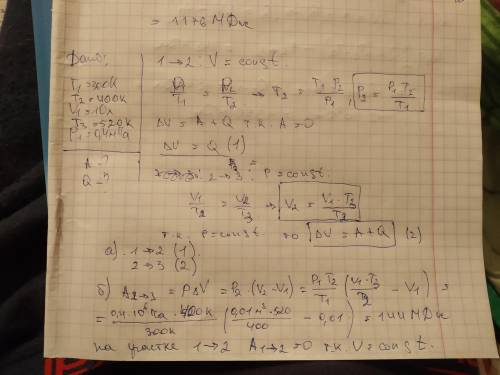 = 1176 МДж
Дано:
T₁ = 300К
T₂ = 400К
V₁ = 10л
T₃ = 520К
P₁ = 0,4мПа
A - ?
Q - ?
1→2 : V = const.
P₁/T₁ = P₂/T₂ → T₂ = T₁ P₂/P₁ ; P₂ = P₁ T₂/T₁
ΔU = A + Q т.к. A = 0
ΔU = Q (1)
2→3 : P = const.
V₁/T₂ = V₂/T₃ → V₂ = V₁ · T₃/T₂
т.к. P = const. то ΔU = A + Q (2)
а) 1→2 (1)
2→3 (2)
б) A₂→₃ = PΔV = P₂ · (V₂ - V₁) = P₁ T₂/T₁ (V₁ · T₃/T₂ - V₁) =
= 0,4 · 10⁶ Па · 400К/300К (0,01м³ · 520/400 - 0,01) = 144 МДж
на участке 1→2 A₁→₂ = 0 т.к. V = const.